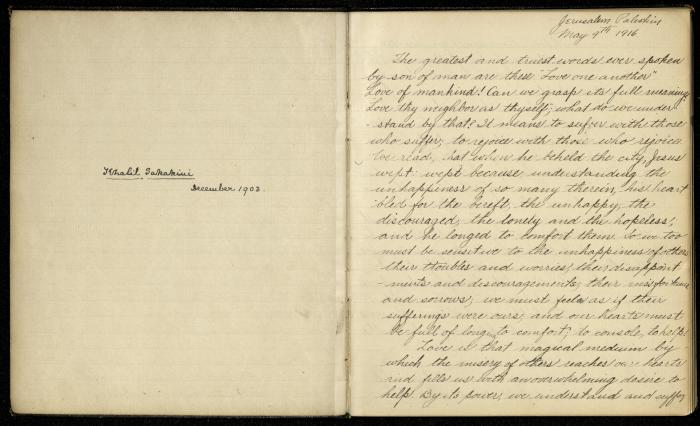 Khalil Sakakini
December 1903.
Jerusalem Palestine
May 9th 1916
The greatest and truest words ever spoken
by son of man are these "Love one another"
Love of mankind! Can we grasp its full meaning
Love thy neighbor as thyself; what do we under
-stand by that? It means to suffer with those
who suffer, to rejoice with those who rejoice
We read, that when he beheld the city, Jesus
wept: wept because understanding the
unhappiness of so many therein, his heart
bled for the bereft, the unhappy, the
discouraged, the lonely and the hopeless;
and he longed to comfort them. So we too
must be sensitive to the unhappiness of others
their troubles and worries, their disappoint
-ments and discouragements, their misfortunes
and sorrows; we must feel as if their
sufferings were ours, and our hearts must
be full of long to comfort, to console, to help!
Love is that magical medium by
which the misery of others reaches our hearts
and fills us with an overwhelming desire to
help. By its power, we understand and